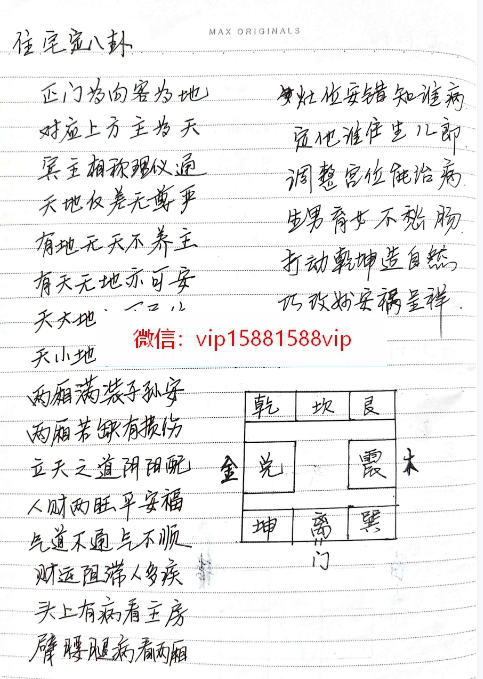 MAX ORIGINALS
住宅定八卦
正门为向客为地
对应上方主为天
宾主相称理仪通
天地仪差无尊严
有地无天不养主
有天无地亦可安
天大地
天小地
两厢满装子孙安
两厢若缺有损伤
立天之道阴阳配
人财两旺平安福
气道不通气不顺
财运阻滞人多疾
头上有病看主房
臂腰腿病看两厢
灶位安错知谁病
定他谁住生儿郎
调整宫位能治病
生男育女不愁肠
打动乾坤造自然
巧改妙安祸呈祥
微信：vip15881588vip
乾 坎 艮
金 兑 震 木
坤 离 巽
门